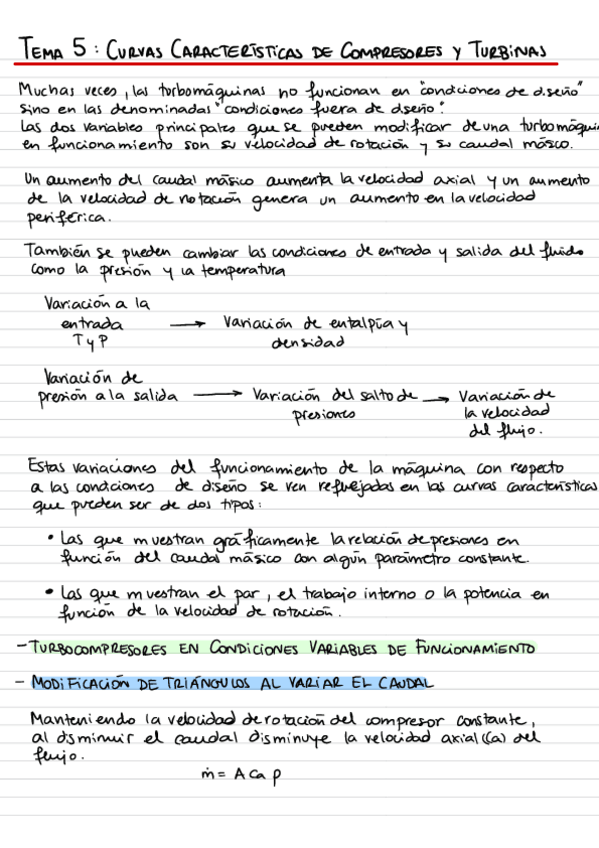 TEMA 5: CURVAS CARACTERÍSTICAS DE COMPRESORES Y TURBINAS
Muchas veces, las torbomáquinas no funcionan en "condiciones de diseño"
sino en las denominadas "condiciones fuera de dseño".
Las dos variables principales que se pueden modificar de una turbomáqui
en funcionamiento son su velocidad de rotación y su caudal másico.
Un aumento del caudal másico aumenta la velocidad axial y un aumento
de la velocidad de rotación genera un aumento en la velocidad
periférica.
También se pueden cambiar las condiciones de entrada y salida del fluido
como la presión y la temperatura
Variación a la
entrada → Variación de entalpía y
T y P densidad
Variación de
presión a la salida → Variación del salto de → Variación de
presiones la velocidad
del flujo.
Estas variaciones del funcionamiento de la máquina con respecto
a las condiciones de diseño se ven reflejadas en las curvas características
que pueden ser de dos tipos:
• Las que muestran gráficamente la relación de presiones en
función del caudal másico con algún parámetro constante.
• Las que muestran el par, el trabajo interno o la potencia en
función de la velocidad de rotación.
- TURBOCOMPRESORES EN CONDICIONES VARIABLES DE FUNCIONAMIENTO
- MODIFICACIÓN DE TRIÁNGULOS AL VARIAR EL CAUDAL
Manteniendo la velocidad de rotación del compresor constante,
al disminuir el caudal disminuye la velocidad axial (Ca) del
flujo.
ṁ = A Ca ρ